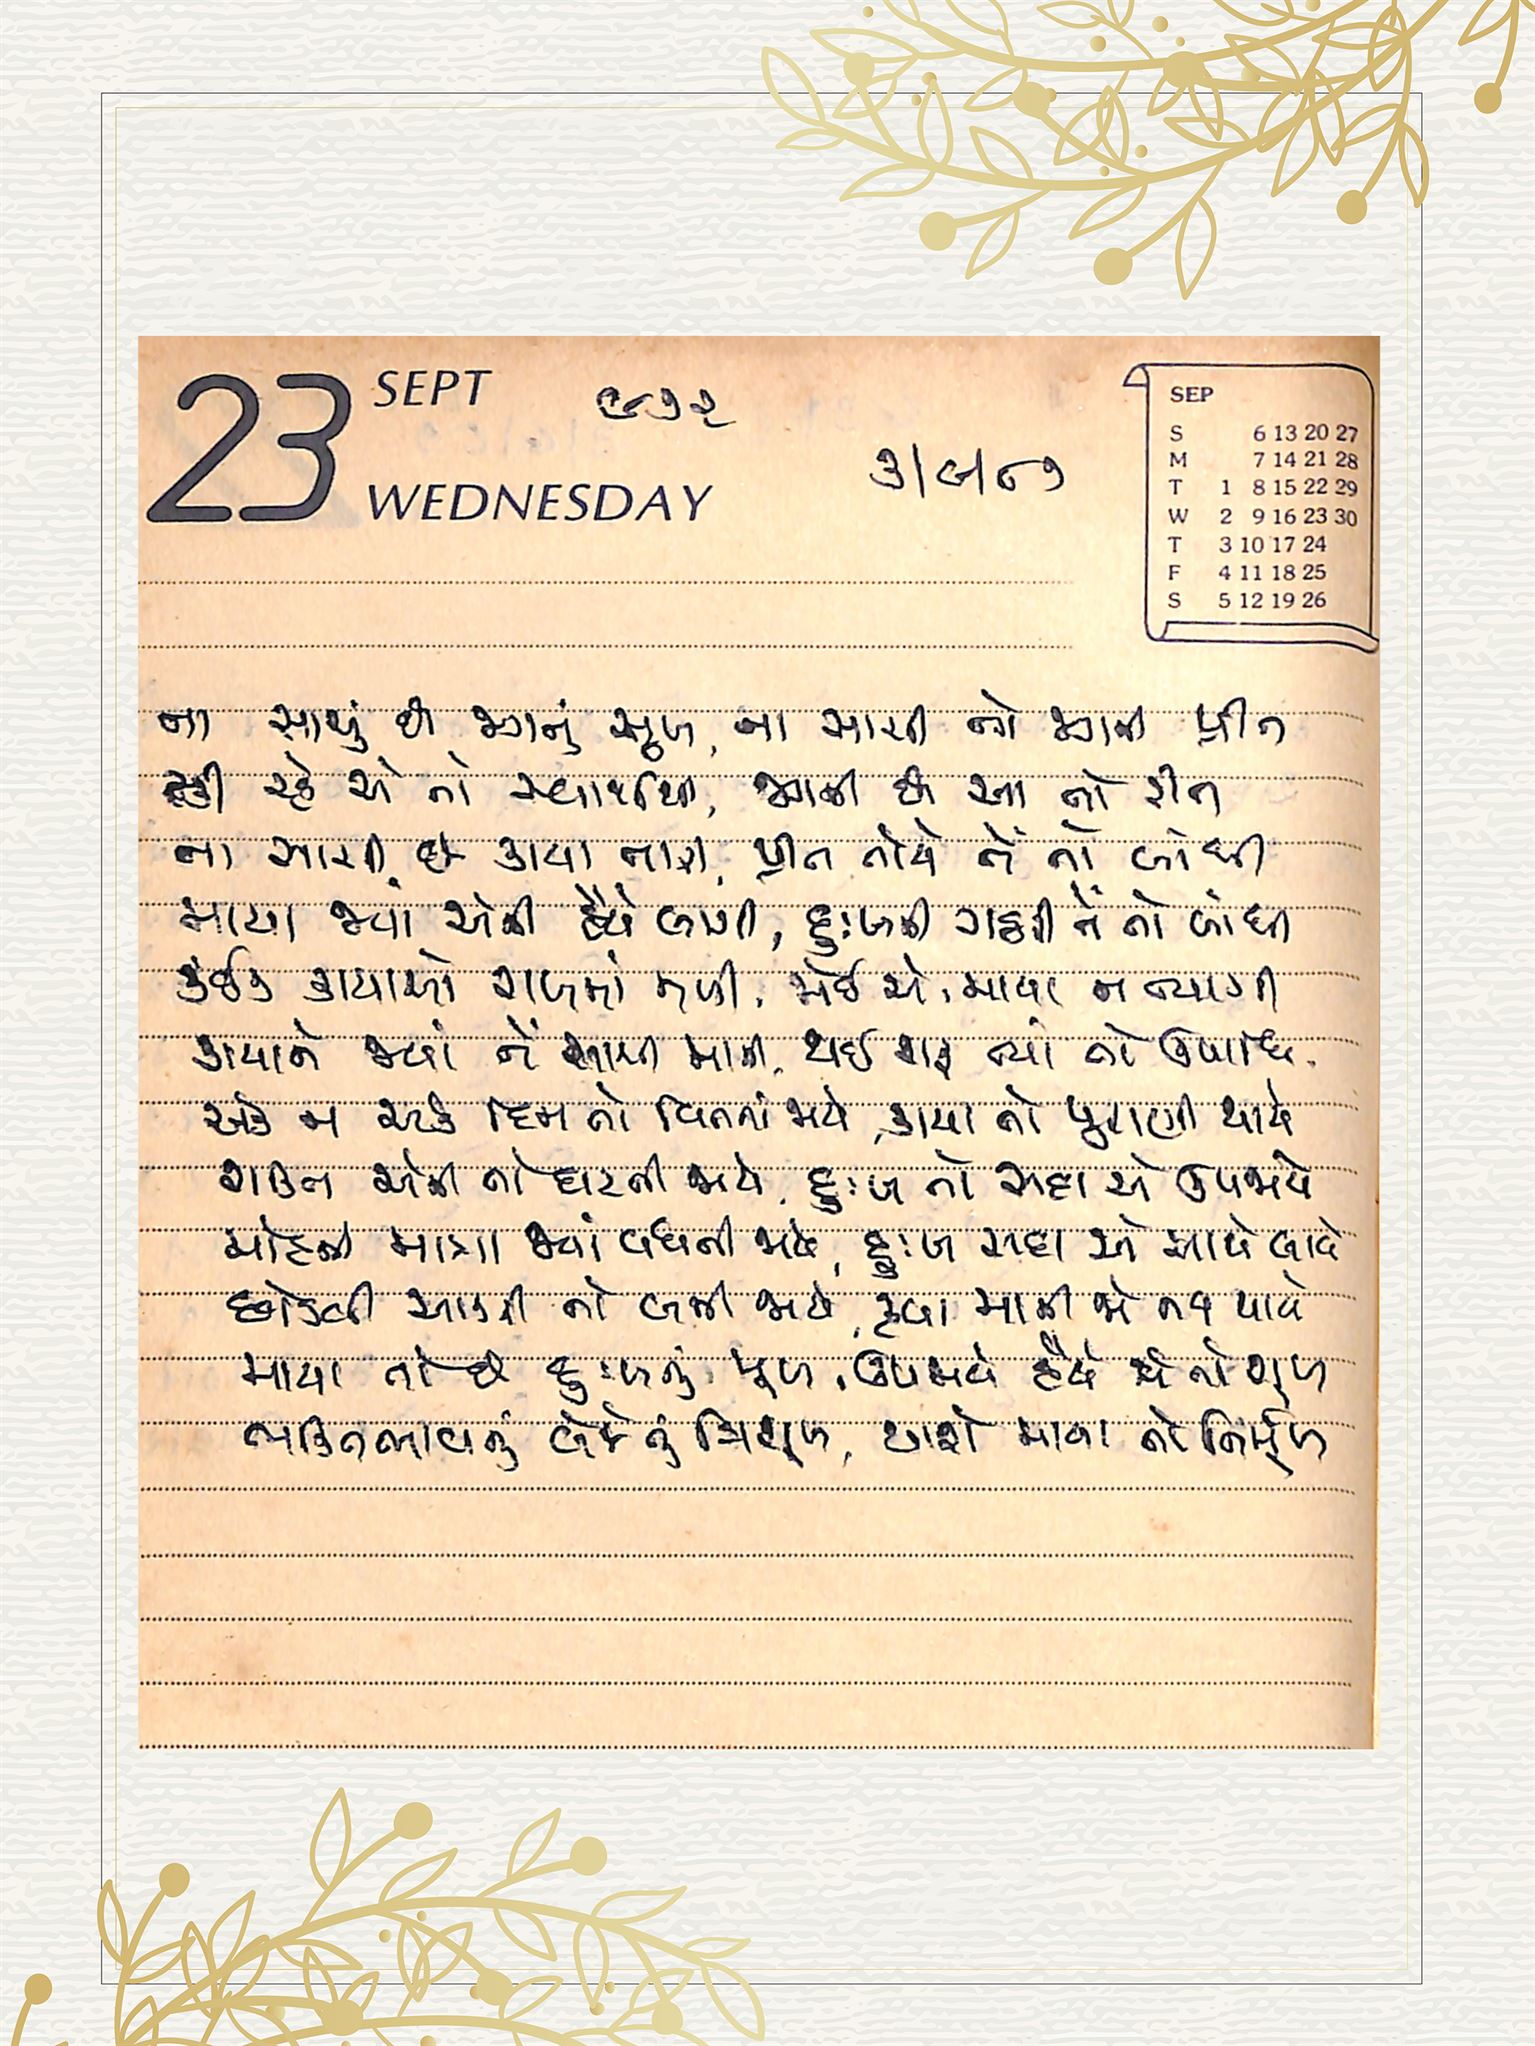 23 SEPT
૯૭૨
WEDNESDAY
૩/૯/૮૭
SEP
S 6 13 20 27
M 7 14 21 28
T 1 8 15 22 29
W 2 9 16 23 30
T 3 10 17 24
F 4 11 18 25
S 5 12 19 26
ના સાચું છે જગનું સુખ, ના સાચી તો જગની પ્રીત
રહે એ તો સ્વાર્થથી, જગની છે આ તો રીત
ના સાચી છે કાયા તારી, પ્રીત તોયે તેં તો બાંધી
માયા જ્યાં એની હૈયે લાગી, દુઃખની ગઠરી તેં તો બાંધી
કંઈક કાયાઓ રાખમાં મળી, જોઈ એ, માયા ન ત્યાગી
કાયાને જ્યાં તેં સાચી માની, થઈ શરૂ ત્યાં તો ઉપાધિ
એક ન એક દિન તો વિતતાં જાયે, કાયા તો પુરાણી થાયે
શક્તિ એની તો ઘટતી જાયે, દુઃખ તો સદા એ ઉપજાવે
મોહની માત્રા જ્યાં વધતી જાયે, દુઃખ સદા એ સાથે લાવે
છોડવી આકરી તો બની જાયે, કૃપા માની જો નવ થાયે
માયા તો છે દુઃખનું મૂળ, ઉપજાવે હૈયે એ તો શૂળ
ભક્તિભાવનું લેજે તું ત્રિશૂળ, થાશે માયા તો નિર્મૂળ